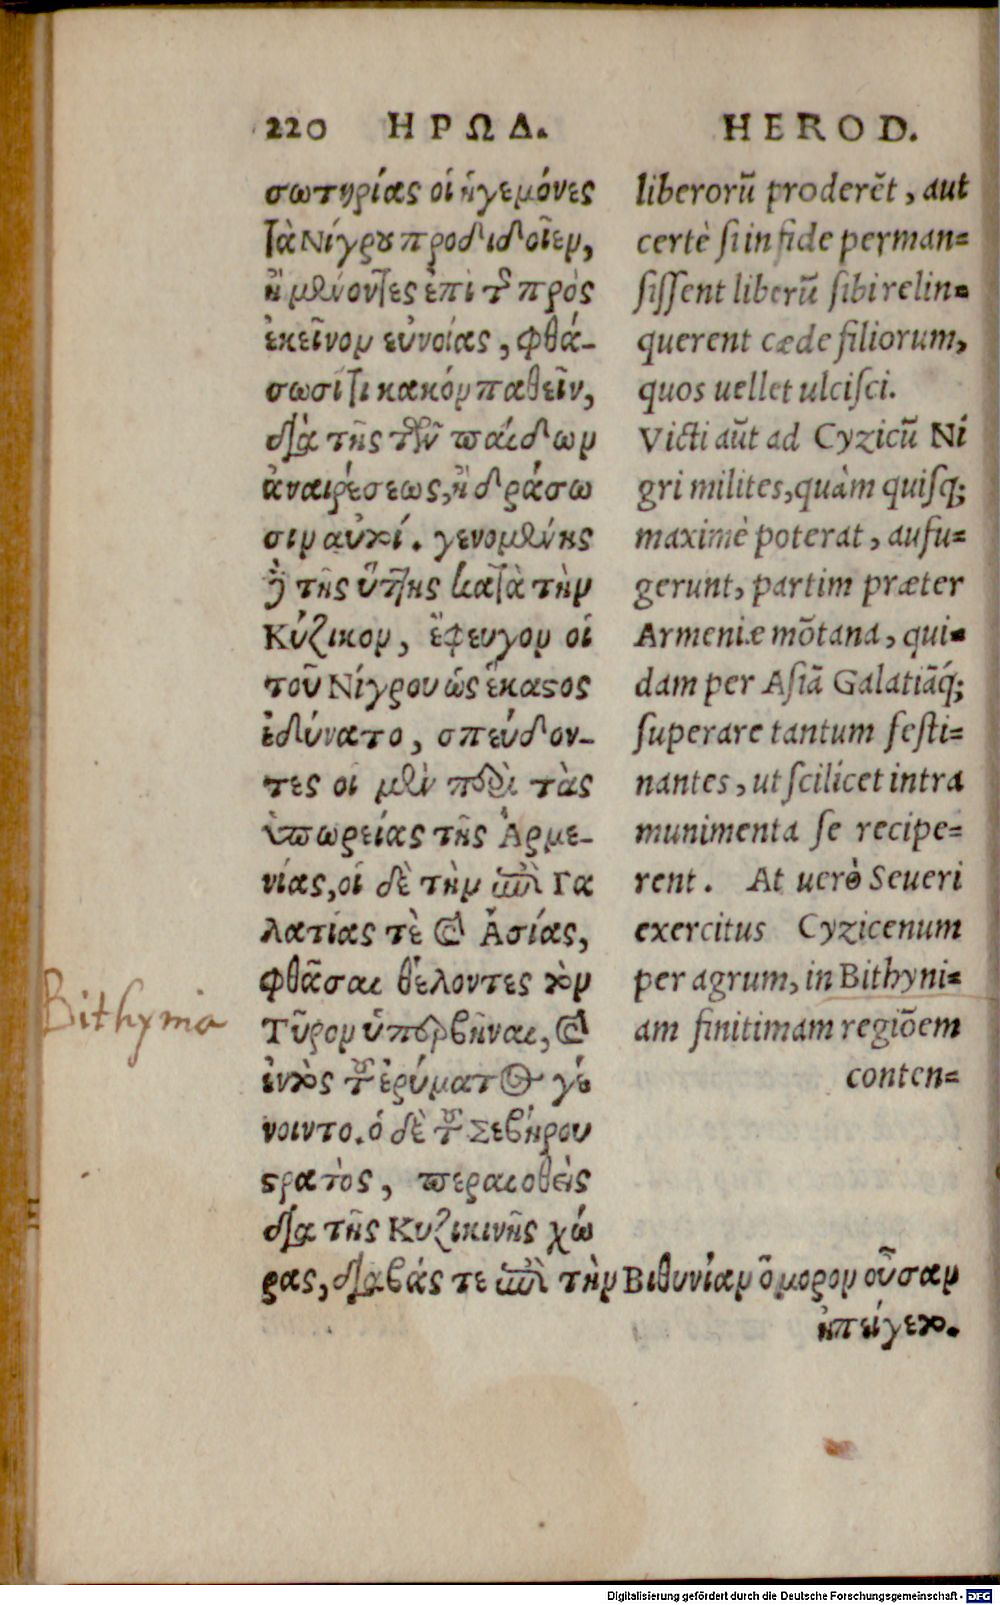 220 ΗΡΩΔ.
σωτηρίας οἱ ἡγεμόνες
τὰ Νίγρου προδιδοῖεν,
ἢ μένοντες ἐπὶ τῆς πρὸς
ἐκεῖνον εὐνοίας, φθά-
σωσί τι κακὸν παθεῖν,
διὰ τῆς τῶν παίδων
ἀναιρέσεως, ἢ δράσω
σιν αὐτοί. γενομένης
δὲ τῆς ἥττης κατὰ τὴν
Κύζικον, ἔφευγον οἱ
τοῦ Νίγρου ὡς ἕκαστος
ἐδύνατο, σπεύδον-
τες οἱ μὲν περὶ τὰς
ὑπωρείας τῆς Ἀρμε-
νίας, οἱ δὲ τὴν ἐπὶ Γα
λατίας τὲ καὶ Ἀσίας,
φθᾶσαι θέλοντες τὸν
Ταῦρον ὑπερβῆναι, καὶ
ἐντὸς τοῦ ἐρύματος γέ
νοιντο. ὁ δὲ τοῦ Σεβήρου
στρατὸς, περαιωθεὶς
διὰ τῆς Κυζικινῆς χώ
ρας, διαβάς τε ἐπὶ τὴν Βιθυνίαν ὅμορον οὖσαν
ἠπείγετο.
HEROD.
liberorũ proderẽt, aut
certè si in fide perman=
sissent liberũ sibi relin=
querent cæde filiorum,
quos uellet ulcisci.
Victi aũt ad Cyzicũ Ni
gri milites, quàm quisq;
maximè poterat, aufu=
gerunt, partim præter
Armeniæ mõtana, qui=
dam per Asiã Galatiãq́;
superare tantum festi=
nantes, ut scilicet intra
munimenta se recipe=
rent. At uerò Seueri
exercitus Cyzicenum
per agrum, in Bithyni=
am finitimam regiõem
conten=
Bithynia
Digitalisierung gefördert durch die Deutsche Forschungsgemeinschaft - DFG